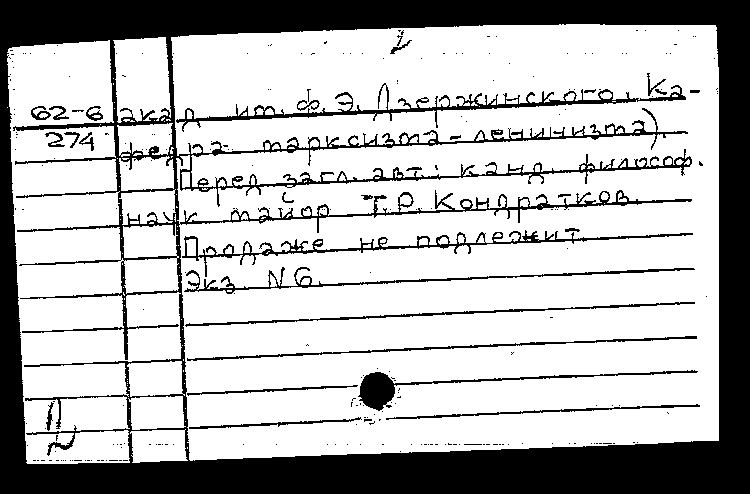 2
62-6 акад им. Ф.Э. Дзержинского. Ка-
274 федра марксизма-ленинизма).
Перед загл. авт.: канд. философ.
наук майор Т.Р. Кондратков.
Продаже не подлежит.
Экз. N6.